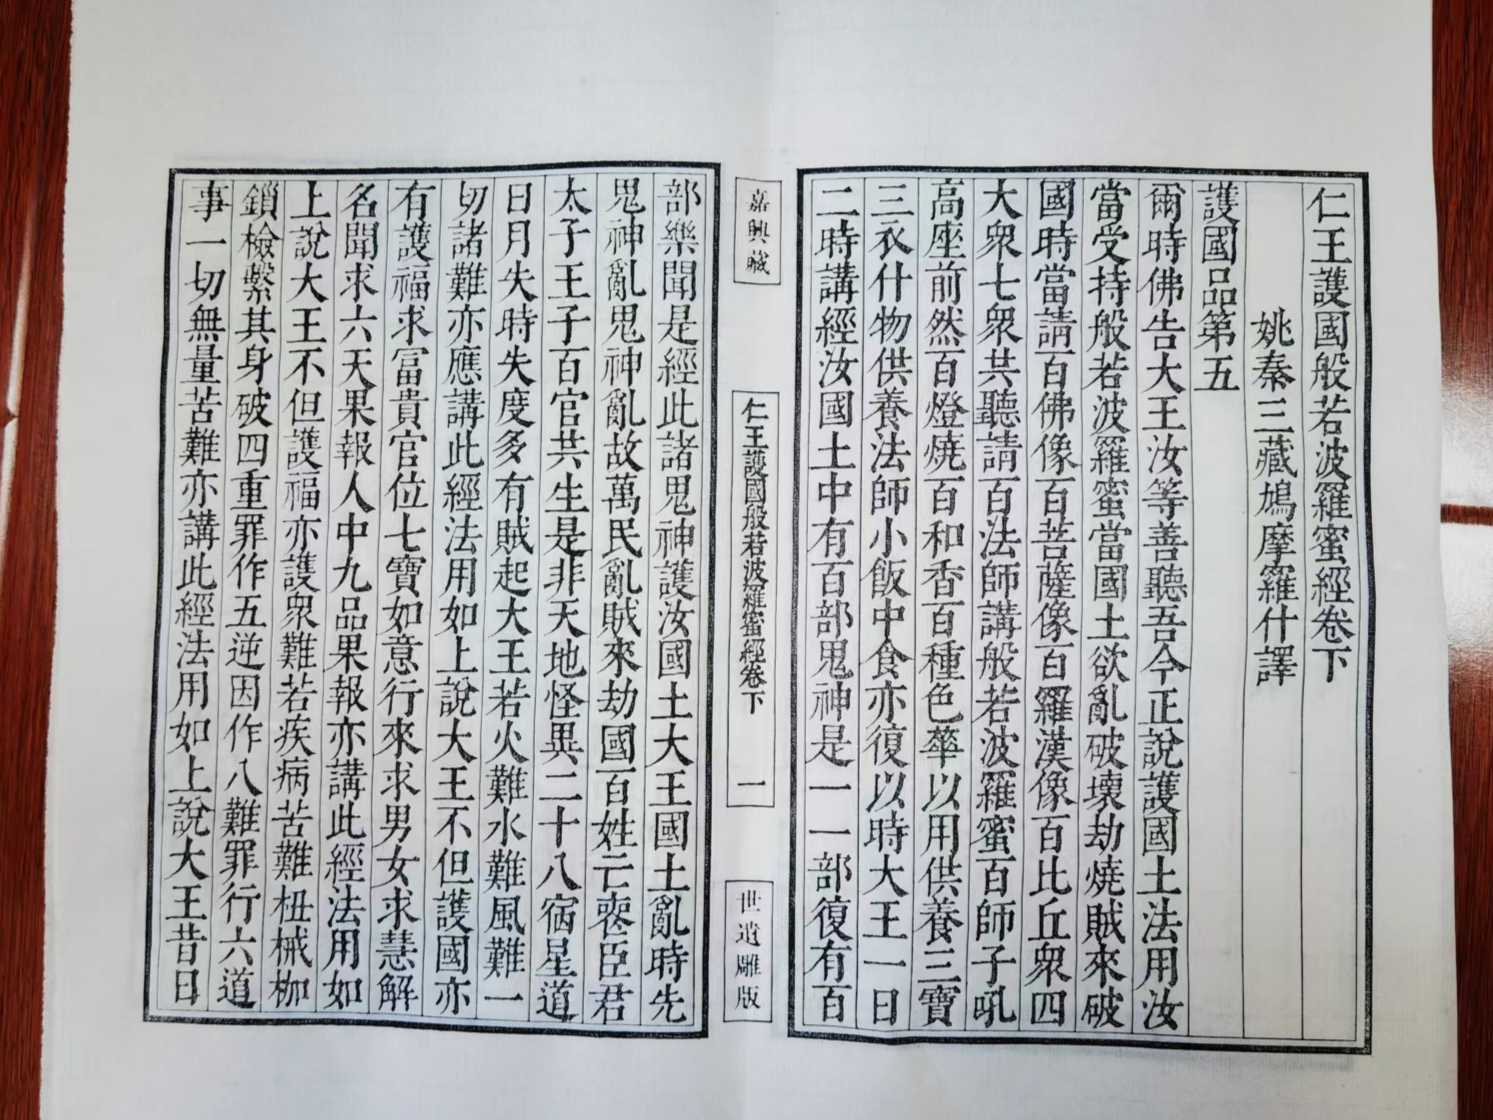 仁王護國般若波羅蜜經卷下
姚秦三藏鳩摩羅什譯
護國品第五
爾時佛告大王汝等善聽吾今正說護國土法用汝
當受持般若波羅蜜當國土欲亂破壞劫燒賊來破
國時當請百佛像百菩薩像百羅漢像百比丘眾四
大眾七眾共聽請百法師講般若波羅蜜百師子吼
高座前然百燈燒百和香百種色華以用供養三寶
三衣什物供養法師小飯中食亦復以時大王一日
二時講經汝國土中有百部鬼神是一一部復有百
嘉興藏
仁王護國般若波羅蜜經卷下 一
世遺雕版
部樂聞是經此諸鬼神護汝國土大王國土亂時先
鬼神亂鬼神亂故萬民亂賊來劫國百姓亡喪臣君
太子王子百官共生是非天地怪異二十八宿星道
日月失時失度多有賊起大王若火難水難風難一
切諸難亦應講此經法用如上說大王不但護國亦
有護福求富貴官位七寶如意行來求男女求慧解
名聞求六天果報人中九品果報亦講此經法用如
上說大王不但護福亦護眾難若疾病苦難杻械枷
鎖檢繫其身破四重罪作五逆因作八難罪行六道
事一切無量苦難亦講此經法用如上說大王昔日